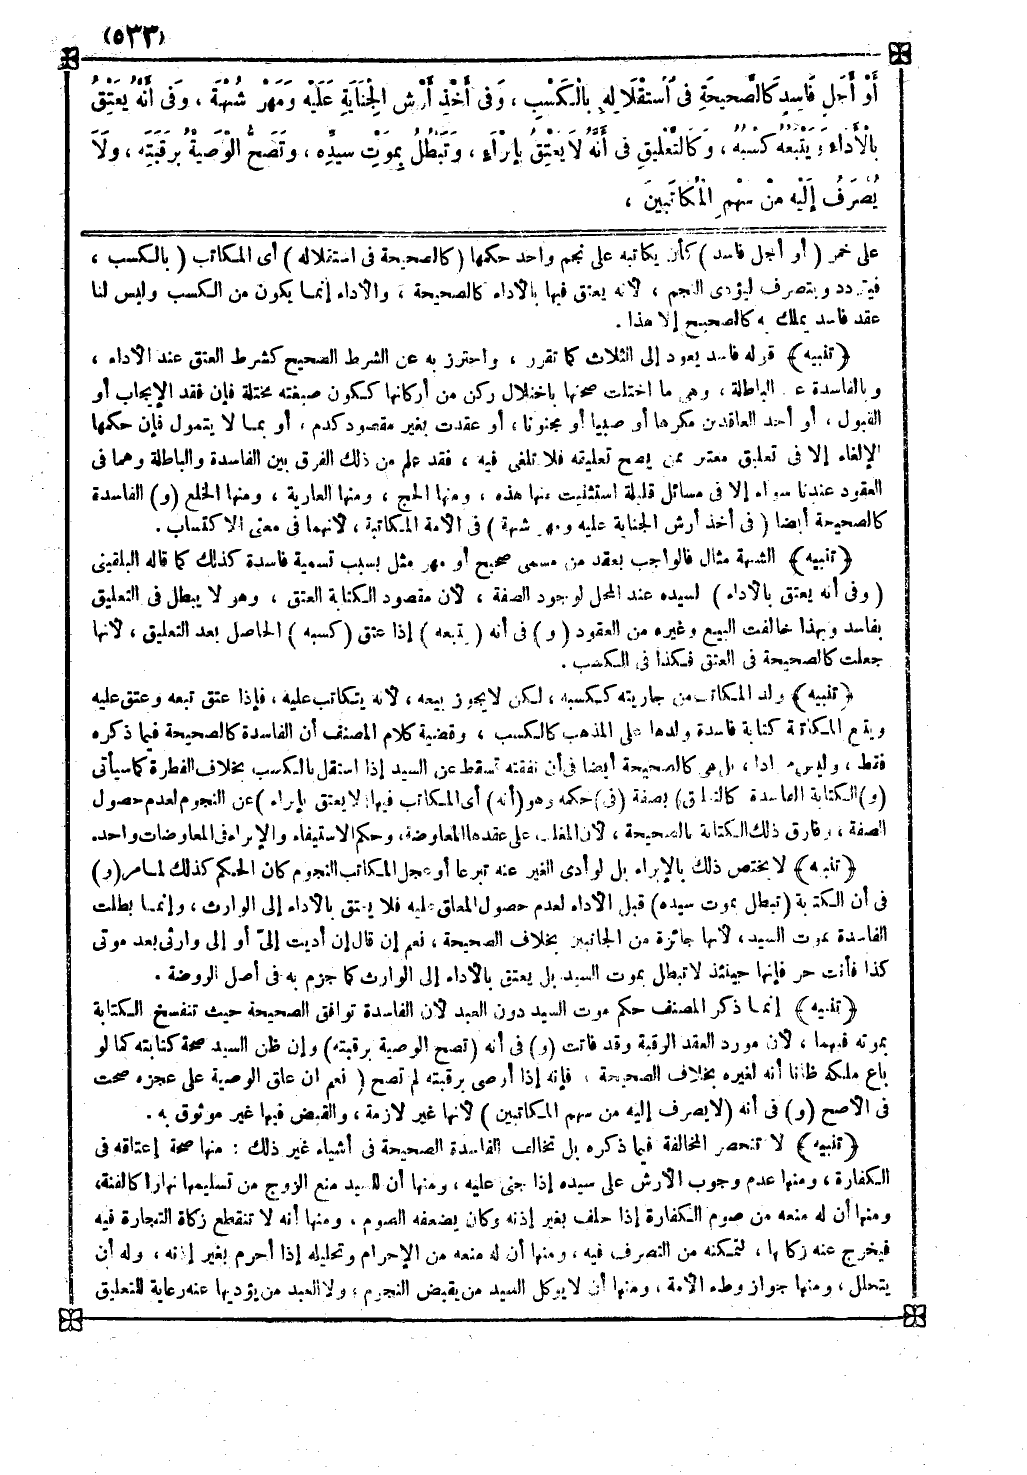 (٥٣٣)
أَوْ أَجَلٍ فَاسِدٍ كَالصَّحِيحَةِ فِى اسْتِقْلَالِهِ بِالْكَسْبِ ، وَفِى أَخْذِ أَرْشِ الْجِنَايَةِ عَلَيْهِ وَمَهْرِ شُبْهَةٍ ، وَفِى أَنَّهُ يَعْتِقُ
بِالْأَدَاءِ وَيَتْبَعُهُ كَسْبُهُ ، وَكَالتَّعْلِيقِ فِى أَنَّهُ لَا يَعْتِقُ بِإِبْرَاءٍ ، وَتَبْطُلُ بِمَوْتِ سَيِّدِهِ ، وَتَصِحُّ الْوَصِيَّةُ بِرَقَبَتِهِ ، وَلَا
يُصْرَفُ إِلَيْهِ مِنْ سَهْمِ الْمُكَاتَبِينَ ،
على خمر ( أو أجل فاسد ) كأن يكاتبه على نجم واحد حكمها ( كالصحيحة فى استقلاله ) أى المكاتب ( بالكسب ،
فيتردد ويتصرف ليؤدى النجم ، لأنه يعتق فيها بالأداء كالصحيحة ، والأداء إنمـا يكون من الكسب وليس لنا
عقد فاسد يملك به كالصحيح إلا هذا .
﴿ تنبيه ﴾ قوله فاسد يعود إلى الثلاث كما تقرر ، واحترز به عن الشرط الصحيح كشرط العتق عند الأداء ،
وبالفاسدة عن الباطلة ، وهى ما اختلت صحتها باختلال ركن من أركانها ككون صيغته مختلة فإن فقد الإيجاب أو
القبول ، أو أحد العاقدين مكرها أو صبيا أو مجنونا ، أو عقدت بغير مقصود كدم ، أو بمـا لا يتمول فإن حكمها
الإلغاء إلا فى تعليق معتبر ممن يصح تعليقه فلا تلغى فيه ، فقد علم من ذلك الفرق بين الفاسدة والباطلة وهما فى
العقود عندنا سواء إلا فى مسائل قليلة استثنيت منها هذه ، ومنها الحج ، ومنها العارية ، ومنها الخلع (و) الفاسدة
كالصحيحة أيضا ( فى أخذ أرش الجناية عليه ومهر شبهة ) فى الأمة المكاتبة ، لأنهما فى معنى الاكتساب .
﴿ تنبيه ﴾ الشبهة مثال فالواجب بعقد من مسمى صحيح أو مهر مثل بسبب تسمية فاسدة كذلك كما قاله البلقينى
( وفى أنه يعتق بالأداء ) لسيده عند المحل لوجود الصفة ، لأن مقصود الكتابة العتق ، وهو لا يبطل فى التعليق
بفاسد وبهذا خالفت البيع وغيره من العقود ( و ) فى أنه ( يتبعه ) إذا عتق ( كسبه ) الحاصل بعد التعليق ، لأنها
جعلت كالصحيحة فى العتق فكذا فى الكسب .
﴿ تنبيه ﴾ ولد المكاتب من جاريته ككسبه ، لكن لايجوز بيعه ، لأنه يتكاتب عليه ، فإذا عتق تبعه وعتق عليه
ويتبع المكاتبة كتابة فاسدة ولدها على المذهب كالكسب ، وقضية كلام المصنف أن الفاسدة كالصحيحة فيما ذكره
فقط ، وليس مرادا ، بل هى كالصحيحة أيضا فى أن نفقته تسقط عن السيد إذا استقل بالكسب بخلاف الفطرة كما سيأتى
(و) الكتابة الفاسدة (كالتعليق) بصفة (فى) حكمه وهو (أنه) أى المكاتب فيها (لا يعتق بإبراء ) عن النجوم لعدم حصول
الصفة ، وفارق ذلك الكتابة الصحيحة ، لأن المغلب على عقدها المعاوضة، وحكم الاستيفاء والإبراء فى المعاوضات واحد.
﴿ تنبيه ﴾ لا يختص ذلك بالإبراء بل لو أدى الغير عنه تبرعا أو عجل المكاتب النجوم كان الحكم كذلك لمـا مر (و)
فى أن الكتابة (تبطل بموت سيده) قبل الأداء لعدم حصول المعلق عليه فلا يعتق بالأداء إلى الوارث ، وإنمـا بطلت
الفاسدة بموت السيد ، لأنها جائزة من الجانبين بخلاف الصحيحة ، نعم إن قال إن أديت إلىّ أو إلى وارثى بعد موتى
كذا فأنت حر فإنها حينئذ لا تبطل بموت السيد بل يعتق بالأداء إلى الوارث كما جزم به فى أصل الروضة .
﴿ تنبيه ﴾ إنمـا ذكر المصنف حكم موت السيد دون العبد لأن الفاسدة توافق الصحيحة حيث تنفسخ الكتابة
بموته فيهما ، لأن مورد العقد الرقبة وقد فاتت (و) فى أنه (تصح الوصية برقبته) وإن ظن السيد صحة كتابته كما لو
باع ملكه ظانا أنه لغيره بخلاف الصحيحة ، فإنه إذا أوصى برقبته لم تصح ( نعم ان علق الوصية على عجزه صحت
فى الأصح (و) فى أنه (لا يصرف إليه من سهم المكاتبين ) لأنها غير لازمة ، والقبض فيها غير موثوق به .
﴿ تنبيه ﴾ لا تنحصر المخالفة فيما ذكره بل تخالف الفاسدة الصحيحة فى أشياء غير ذلك : منها صحة إعتاقه فى
الكفارة ، ومنها عدم وجوب الأرش على سيده إذا جنى عليه ، ومنها أن للسيد منع الزوج من تسليمها نهارا كالقنة،
ومنها أن له منعه من صوم الكفارة إذا حلف بغير إذنه وكان يضعفه الصوم ، ومنها أنه لا تنقطع زكاة التجارة فيه
فيخرج عنه زكاتها ، لتمكنه من التصرف فيه ، ومنها أن له منعه من الإحرام وتحليله إذا أحرم بغير إذنه ، وله أن
يتحلل ، ومنها جواز وطء الأمة ، ومنها أن لا يوكل السيد من يقبض النجوم ، ولا العبد من يؤديها عنه رعاية للتعليق